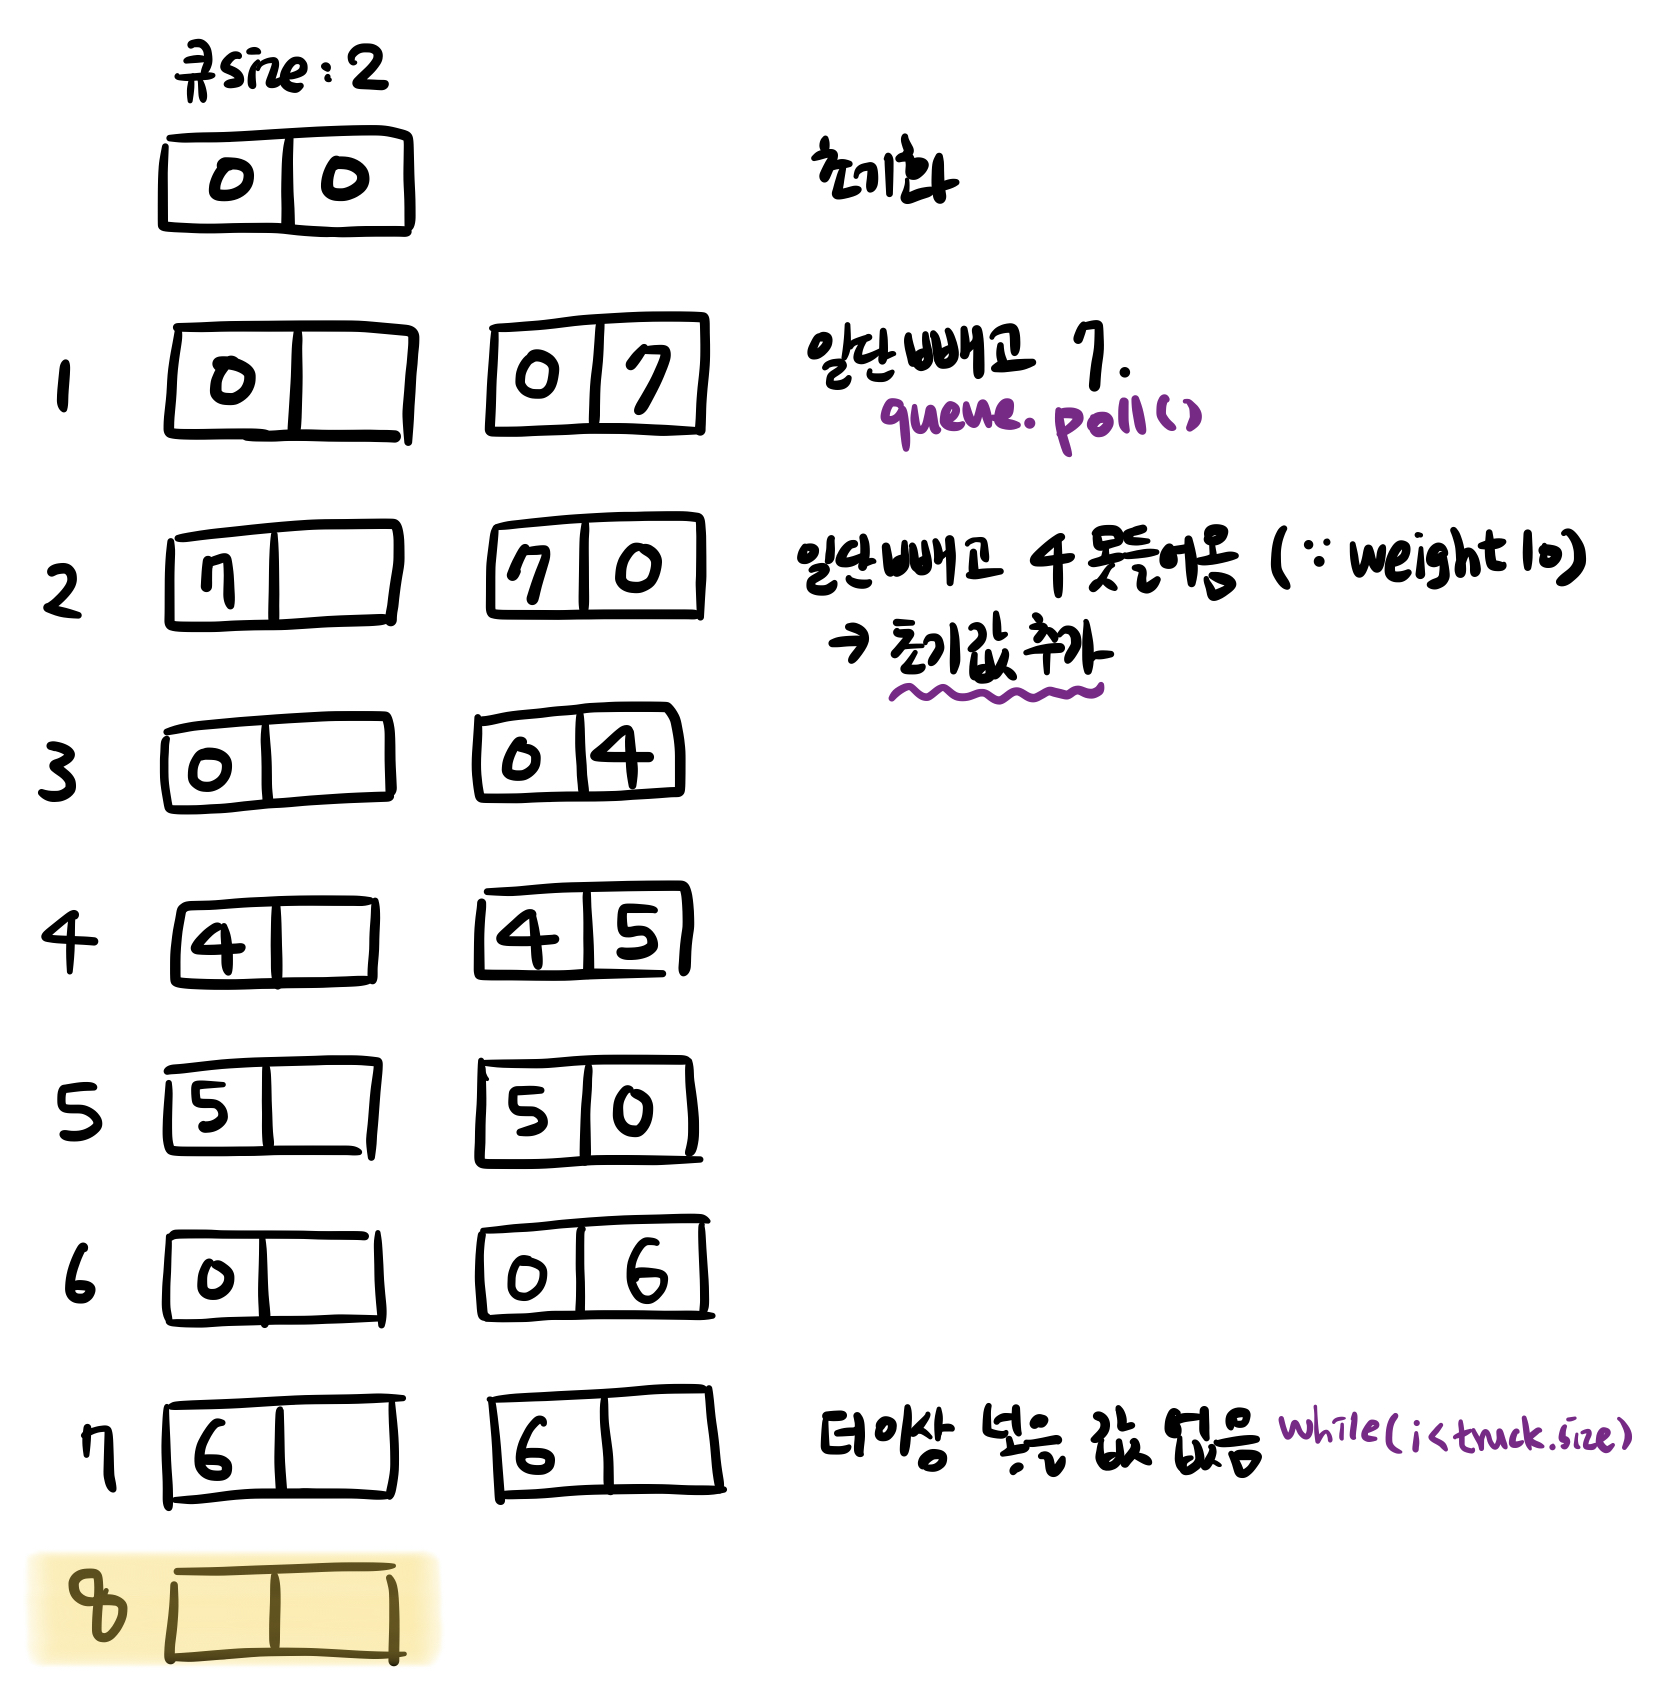 큐size : 2
0 0 초기화
1 0 0 7 일단 빼고 7.
queue. poll()
2 7 7 0 일단 빼고 4 못들어옴 (∵ weight 10)
→ 초기값 추가
3 0 0 4
4 4 4 5
5 5 5 0
6 0 0 6
7 6 6 더이상 넣을 값 없음 while(i<truck.size)
8